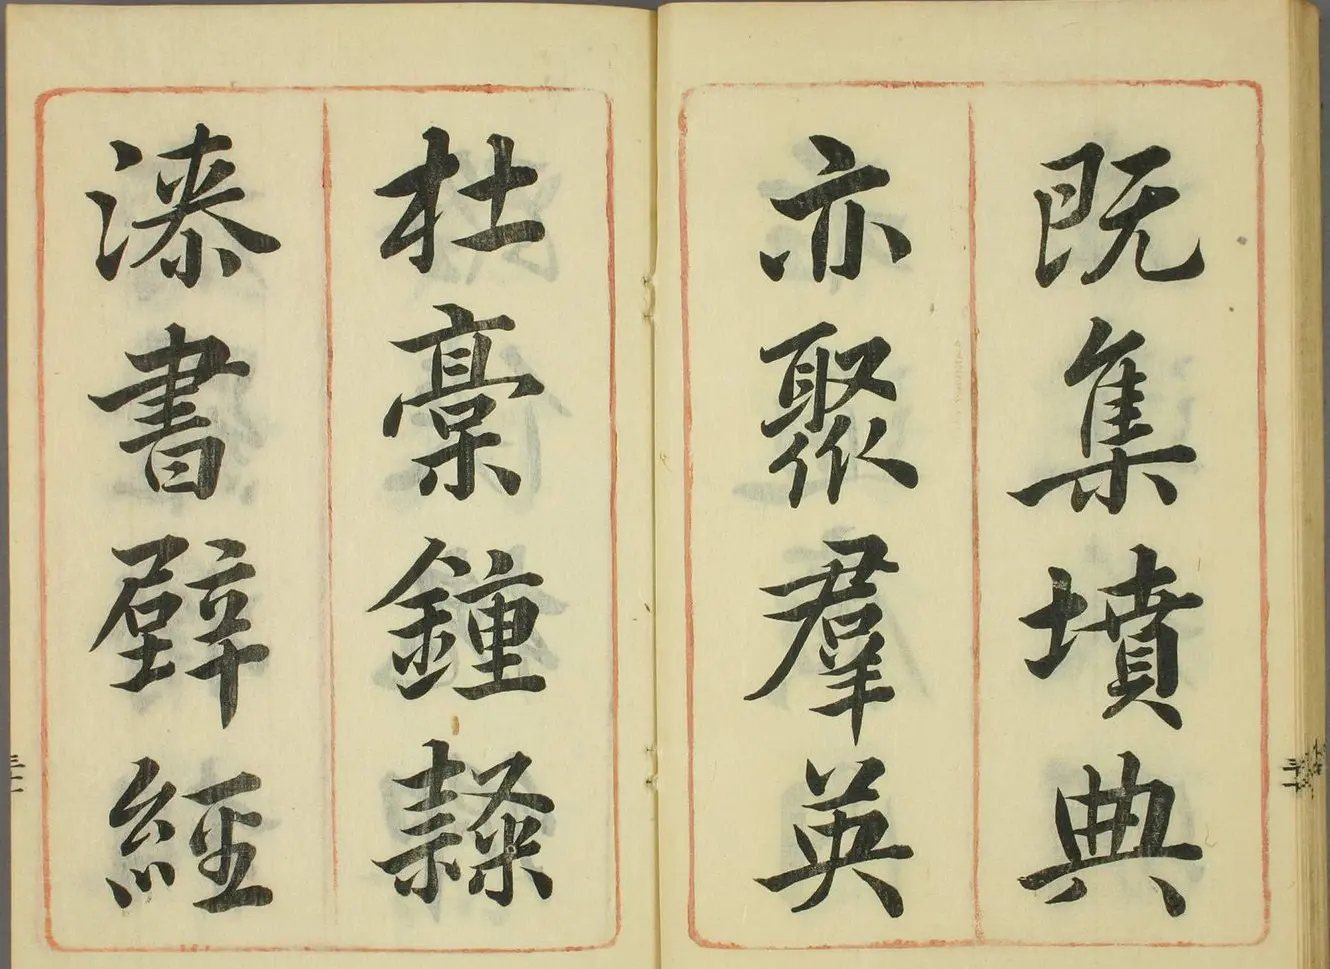 既集墳典
亦聚羣英
杜稾鍾隸
漆書壁經